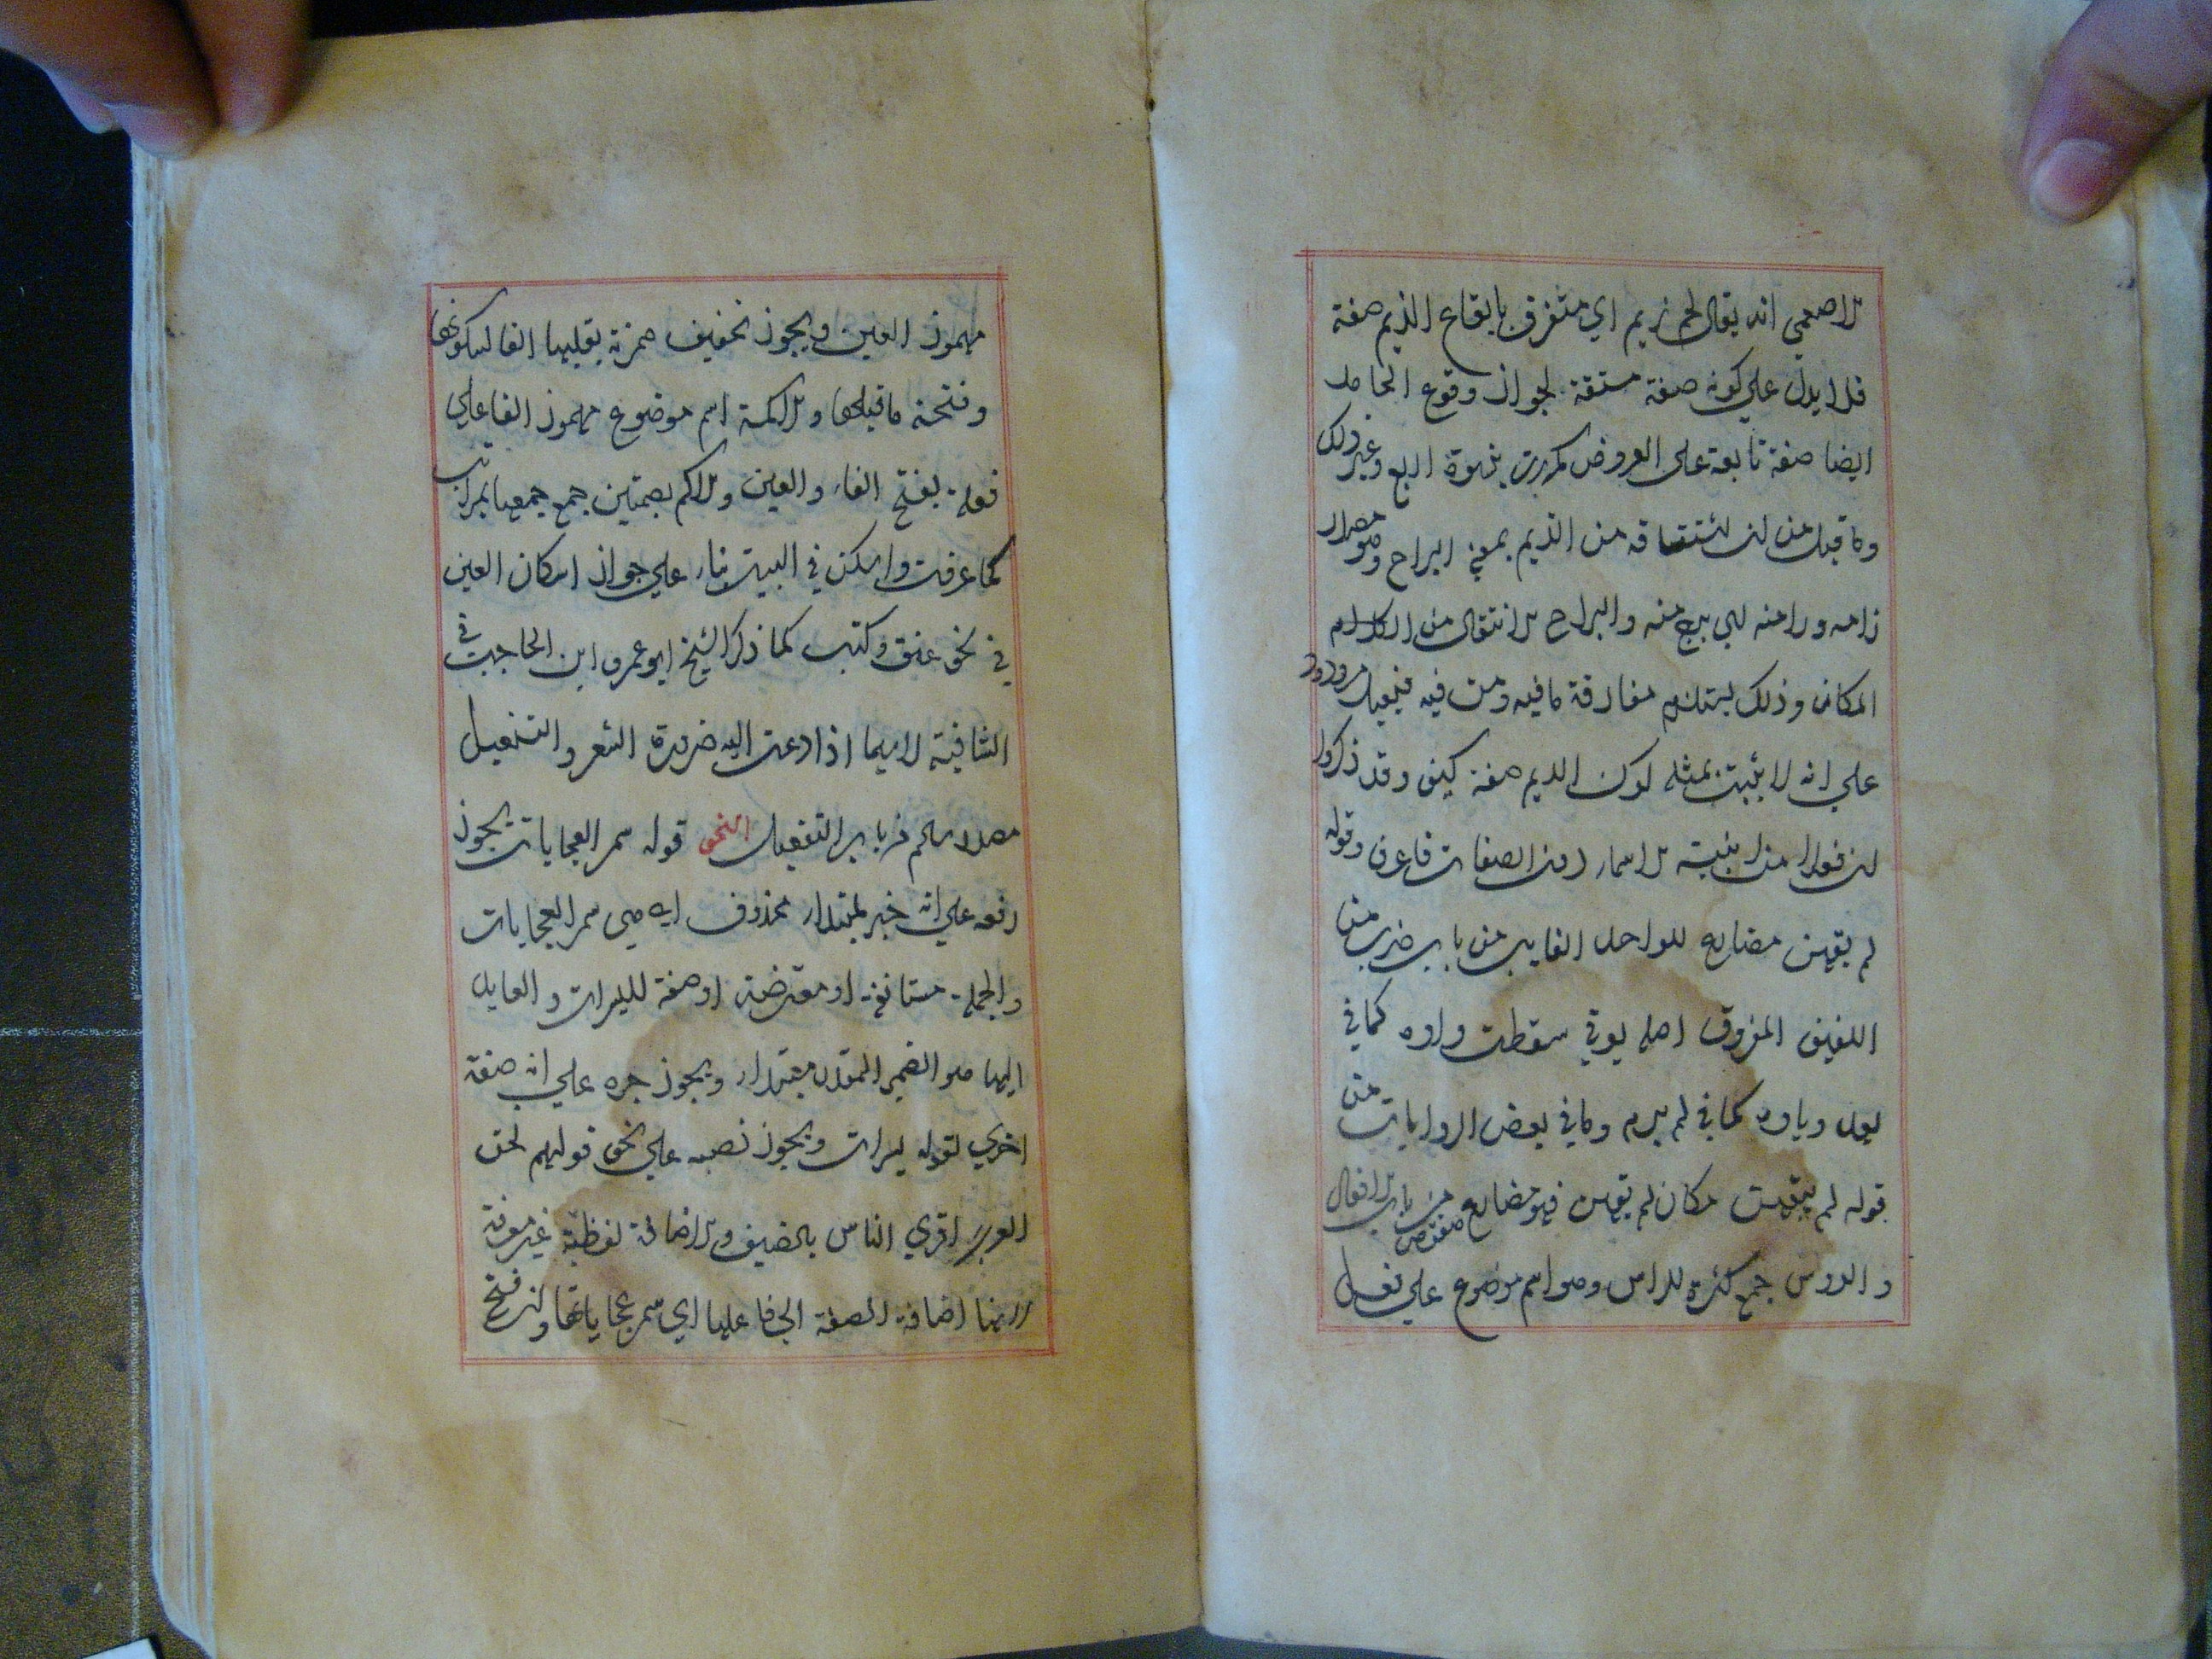 الاصمعي انه يقال لحم زيم اي متفرق بايقاع الزيم صفة
فلا يدل علي كونه صفة مشتقة لجواز وقوع الجامد
ايضا صفة تابعة على العروض كمررت بنسوة اربع وغير ذلك
وما قيل من ان اشتقاقه من الزيم بمعني البراح وهو مصدر
رامه ورامنه اي برح منه والبراح الانتقال من
المكان وذلك يستلزم مفارقة ما فيه ومن فيه فبعيد مردود
علي انه لا يثبت بمثله كون الزيم صفة كيف وقد ذكروا
ان فعلا من ابنية الاسماء دون الصفات فاعرف وقوله
لم يقهن مضارع للواحد الغايب من باب ضرب من
اللفيف المفروق اصله يوقي سقطت واوه كما في
يعد وياوه كما في لم يرم وما في بعض الروايات من
قوله لم يبقهن مكان لم يقهن فهو مضارع من باب الافعال
والروس جمع كثرة للراس وهو اسم موضوع علي فعل
مهموز العين ويجوز تخفيف همزته بقلبها الفا لسكونها
وفتحة ما قبلها والاكمة اسم موضوع مهموز الفا علي
فعلة بفتح الفاء والعين والاكم بضمتين جمع جمعها بمراتب
كما عرفت واسكن في البيت بناء علي جواز اسكان العين
في نحو عنق وكتب كما ذكر الشيخ ابو عمرو ابن الحاجب في
الشافية لا سيما اذا دعت اليه ضرورة الشعر والتنعيل
مصدر سالم من باب التفعيل النحو قوله سمر العجايات يجوز
رفعه علي انه خبر لمبتداء محذوف اي هي سمر العجايات
والجملة مستانفة او معترضة او صفة لليسرات والعايد
اليها هو الضمير المقدر مبتداء ويجوز جره علي انه صفة
اخري لقوله يسرات ويجوز نصبه علي نحو قولهم نحن
العرب اقري الناس بالضيف والاضافة لفظية غير معرفة
لانها اضافة الصفة الي فاعلها اي سمر عجاياتها ولن فتح